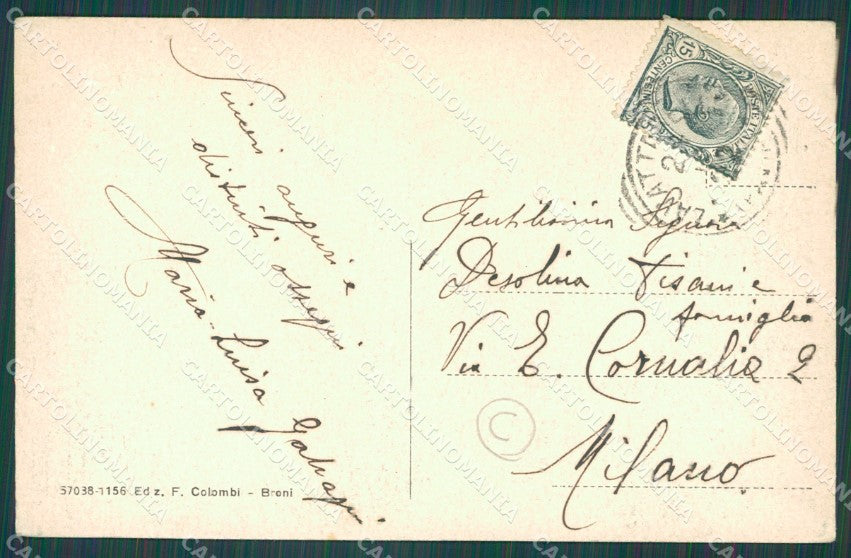 Sinceri auguri e
distinti ossequi
Maria-Luisa
57038-1156 Ediz. F. Colombi - Broni
15
CENTESIMI
POSTE ITALIANE
Gentilissima Signora
Desolina Pisani e
famiglia
Via E. Cornalia 2
Milano
C
CARTOLINOMANIA